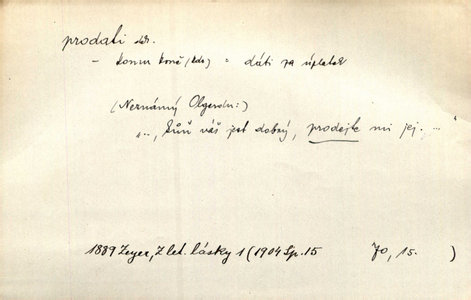 prodati dk.
- komu koně (kdo) = dáti za úplatek
(Neznámý Olgerdu:)
„..., kůň váš jest dobrý, prodejte mi jej. ..."
1889 Zeyer, Z let. lásky 1 (1904 Sp. 15 70, 15. )